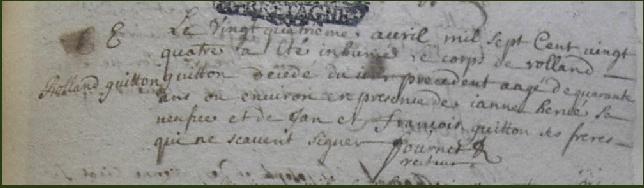 BRETAGNE
E Le Vingt quatrieme avril mil sept Cent vingt
quatre a été inhumé le corps de rolland
Rolland guitton guitton décédé du jour precedent aagé de quarante
ans ou environ en presence de janne hervé sa
veufve et de Jan et françois guitton ses freres
qui ne scauent signer fournier
recteur